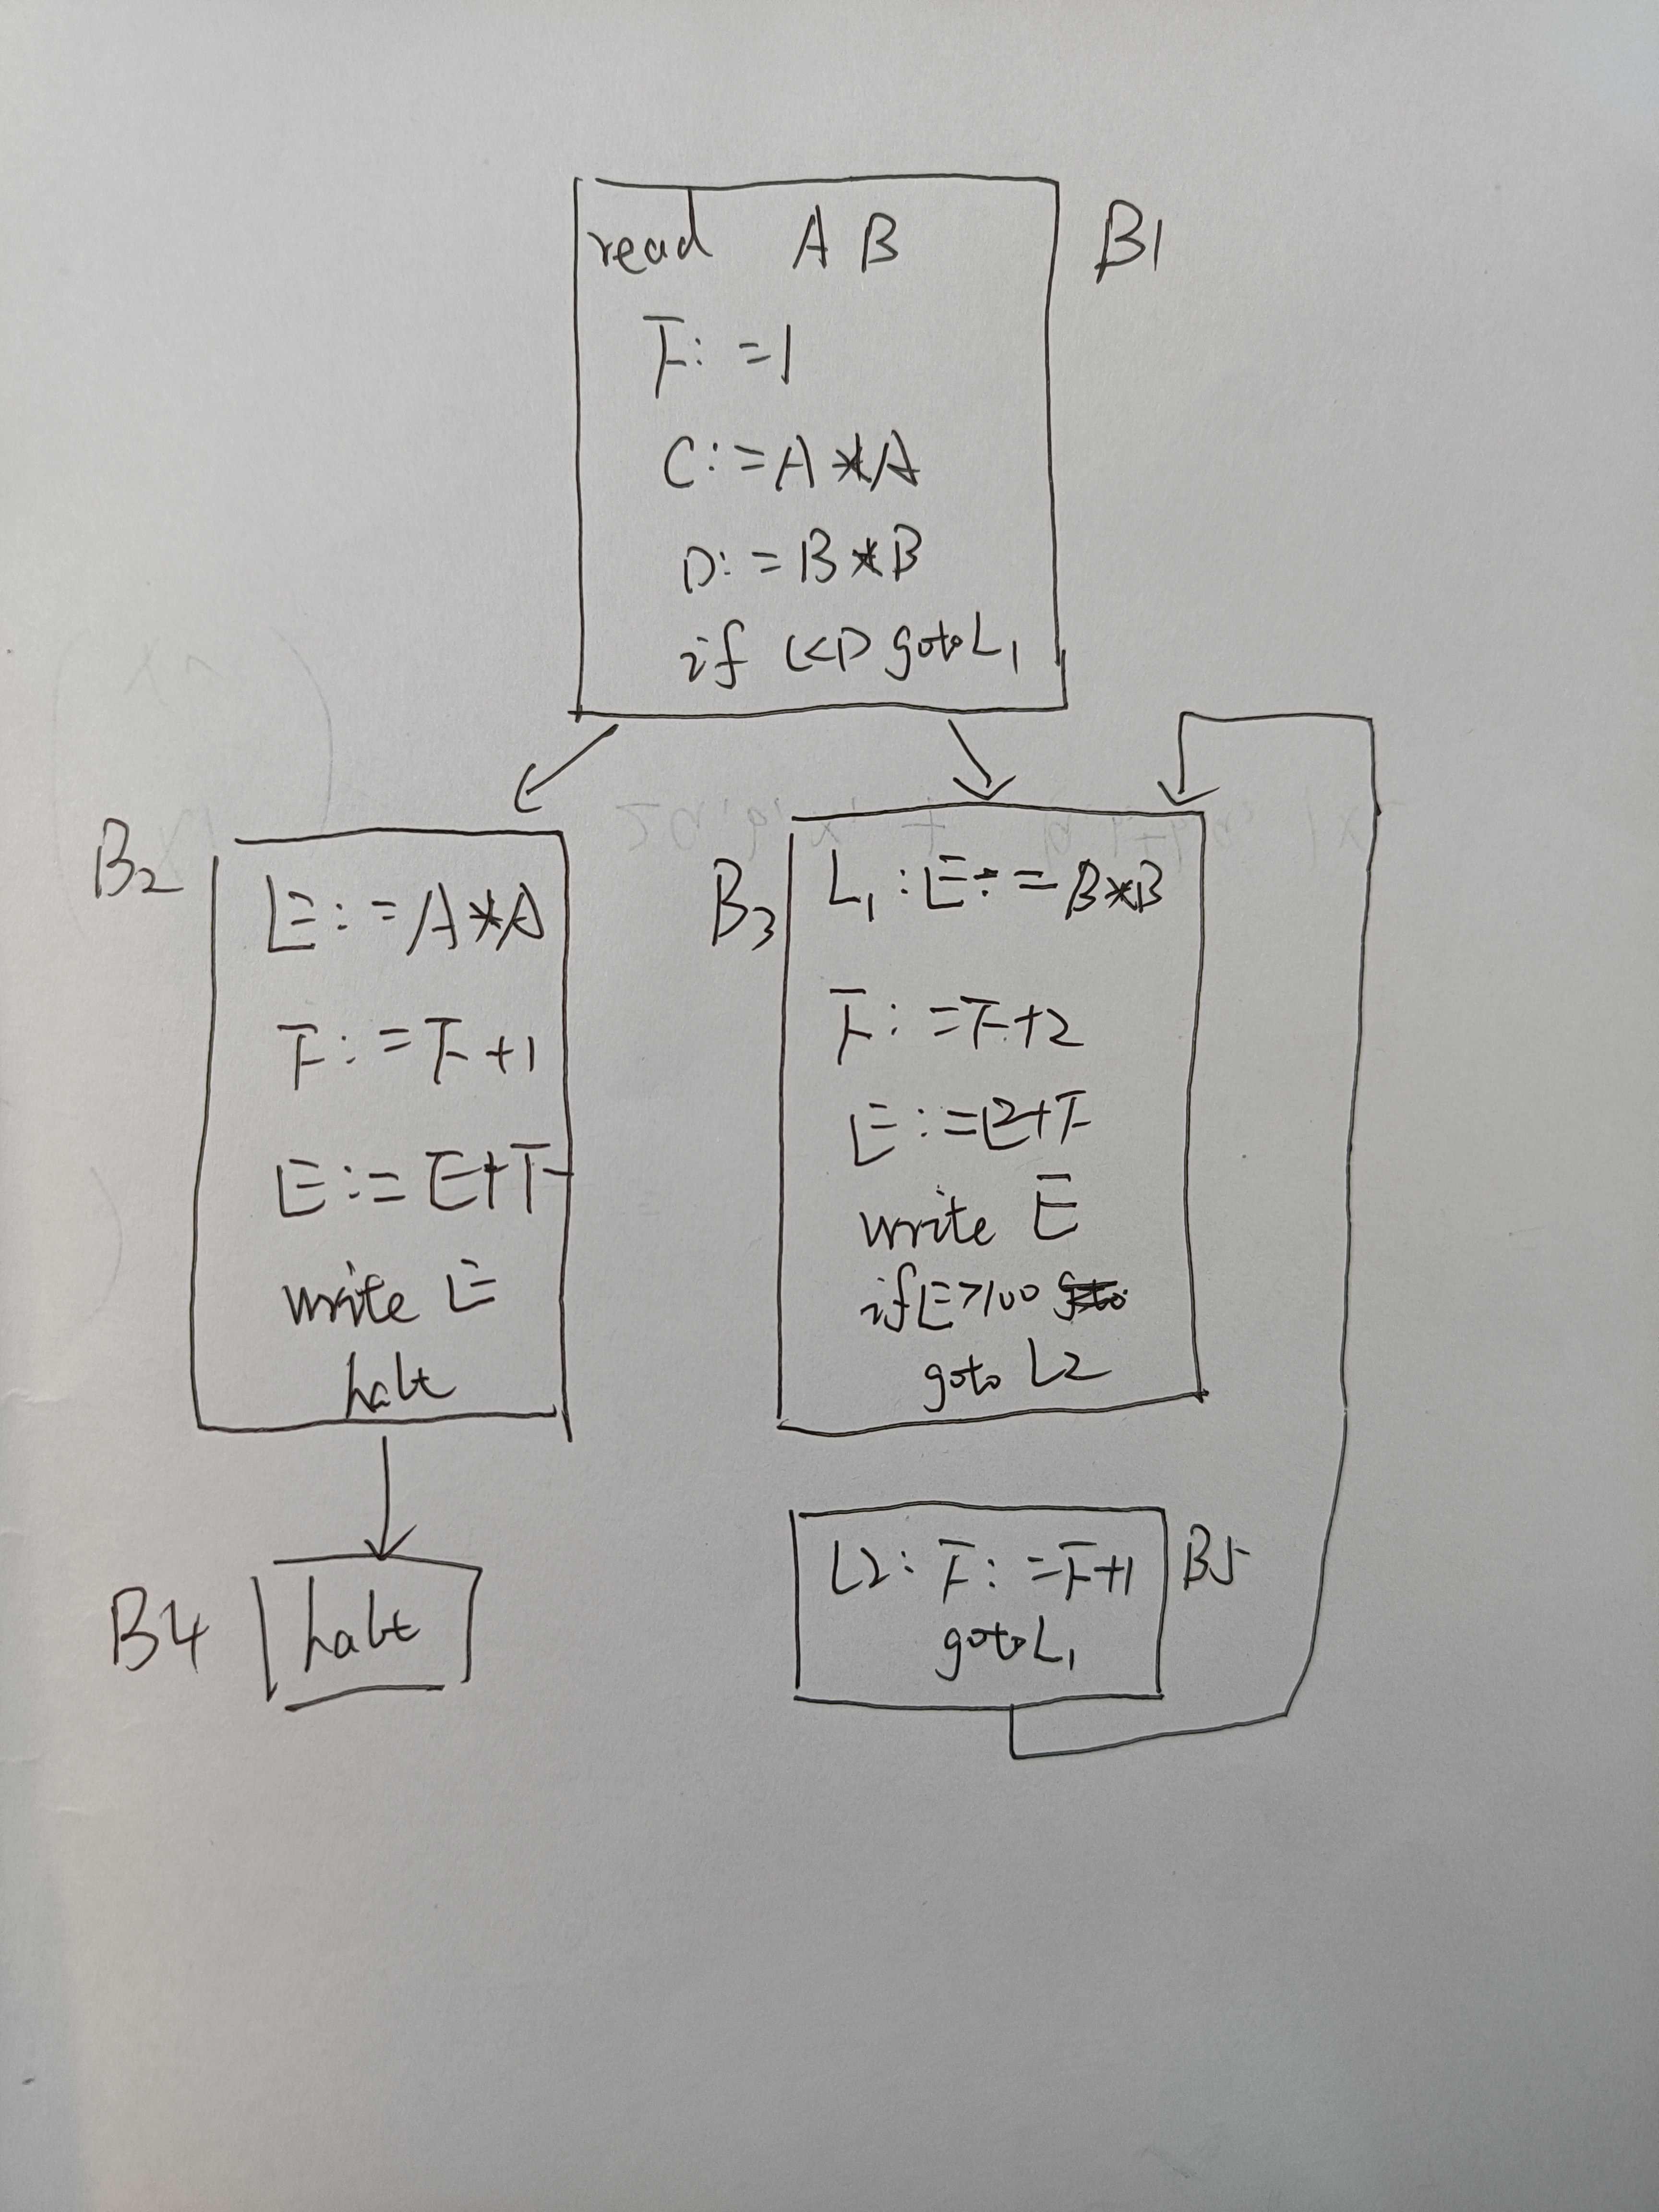 read A B
B1
F:=1
C:=A*A
D:=B*B
if C<D goto L1
B2
E:=A*A
F:=F+1
E:=E+F
write E
halt
B3
L1:E:=B*B
F:=F+2
E:=E+F
write E
if E>100
goto L2
B4
halt
L2: F:=F+1
goto L1
B5